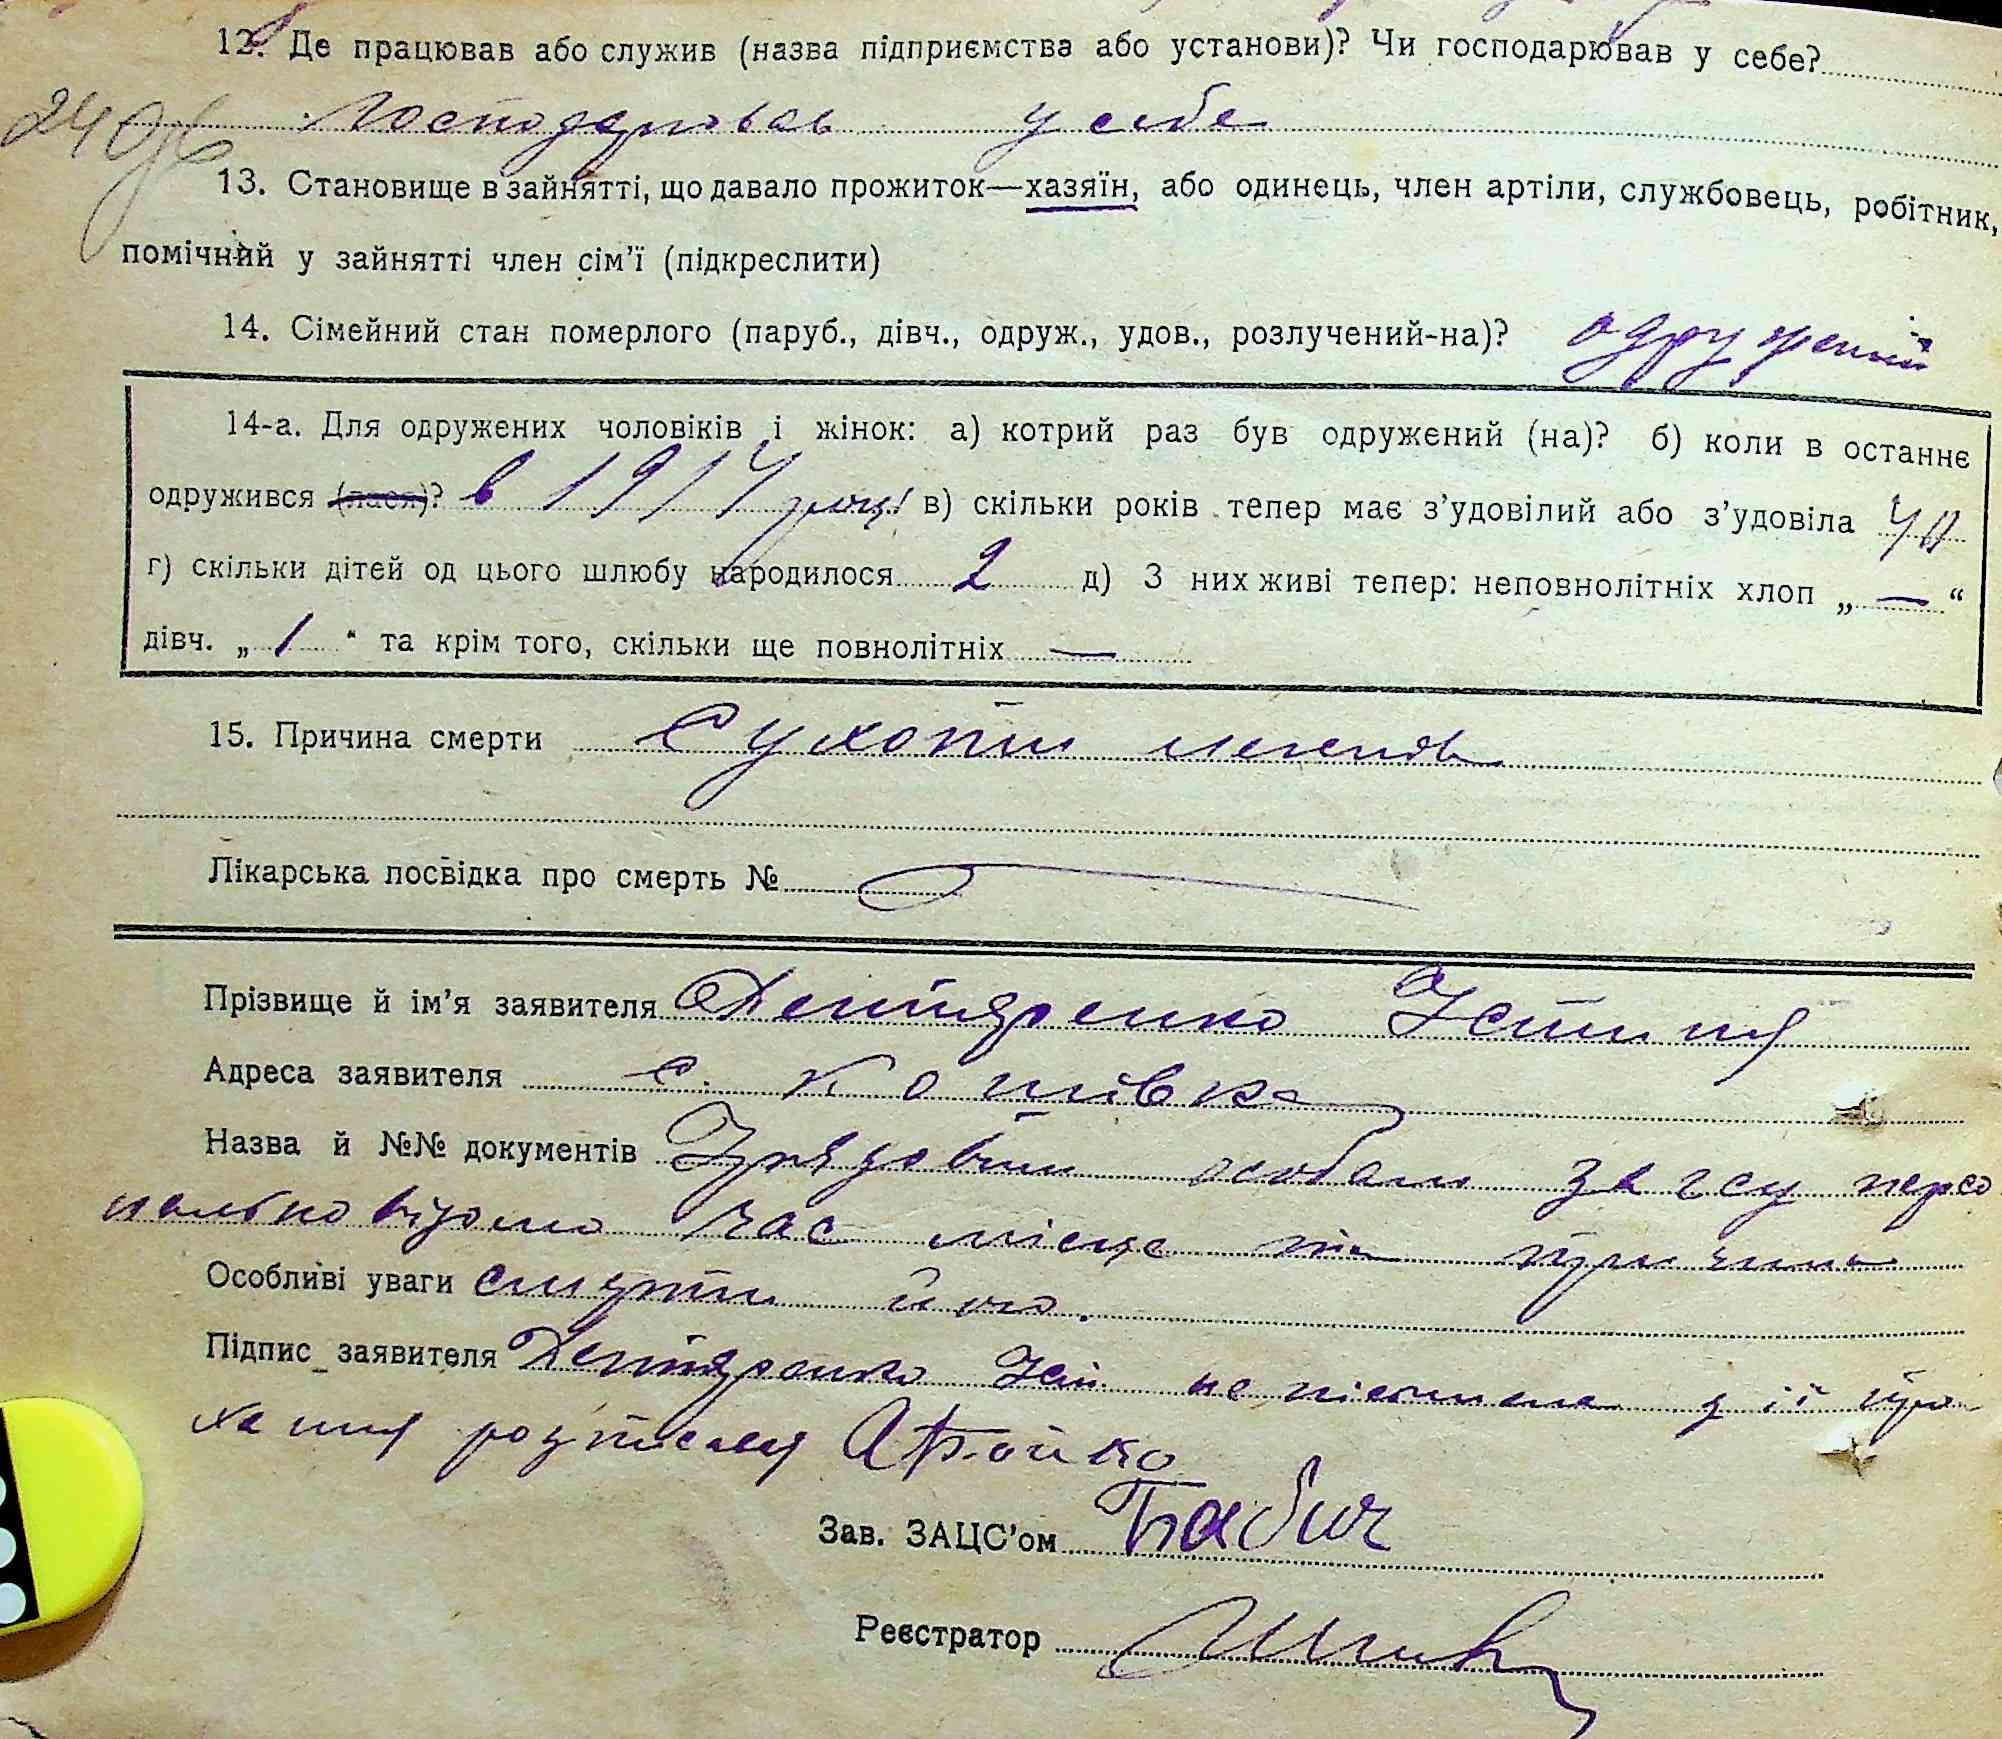 12. Де працював або служив (назва підприємства або установи)? Чи господарював у себе?
Господарював у себе
13. Становище в зайнятті, що давало прожиток—хазяїн, або одинець, член артіли, службовець, робітник,
помічний у зайнятті член сім’ї (підкреслити)
14. Сімейний стан померлого (паруб., дівч., одруж., удов., розлучений-на)? одружений
14-а. Для одружених чоловіків і жінок: а) котрий раз був одружений (на)? б) коли в останнє
одружився (лася)? в 1914 році в) скільки років тепер має з’удовілий або з’удовіла
г) скільки дітей од цього шлюбу народилося 2 д) З них живі тепер: неповнолітніх хлоп „ — “
дівч. „ 1 “ та крім того, скільки ще повнолітніх —
15. Причина смерти Сухоти легенів
Лікарська посвідка про смерть №
Прізвище й ім’я заявителя Дегтяренко Устиня
Адреса заявителя с.
Назва й №№ документів Урядовим особам загсу персо
нально відомо час місце та причина
Особливі уваги смерти його.
Підпис заявителя Дегтяренко Уст неписьмена з її про
хання розписався А Бойко
Зав. ЗАЦС’ом Бабич
Реєстратор